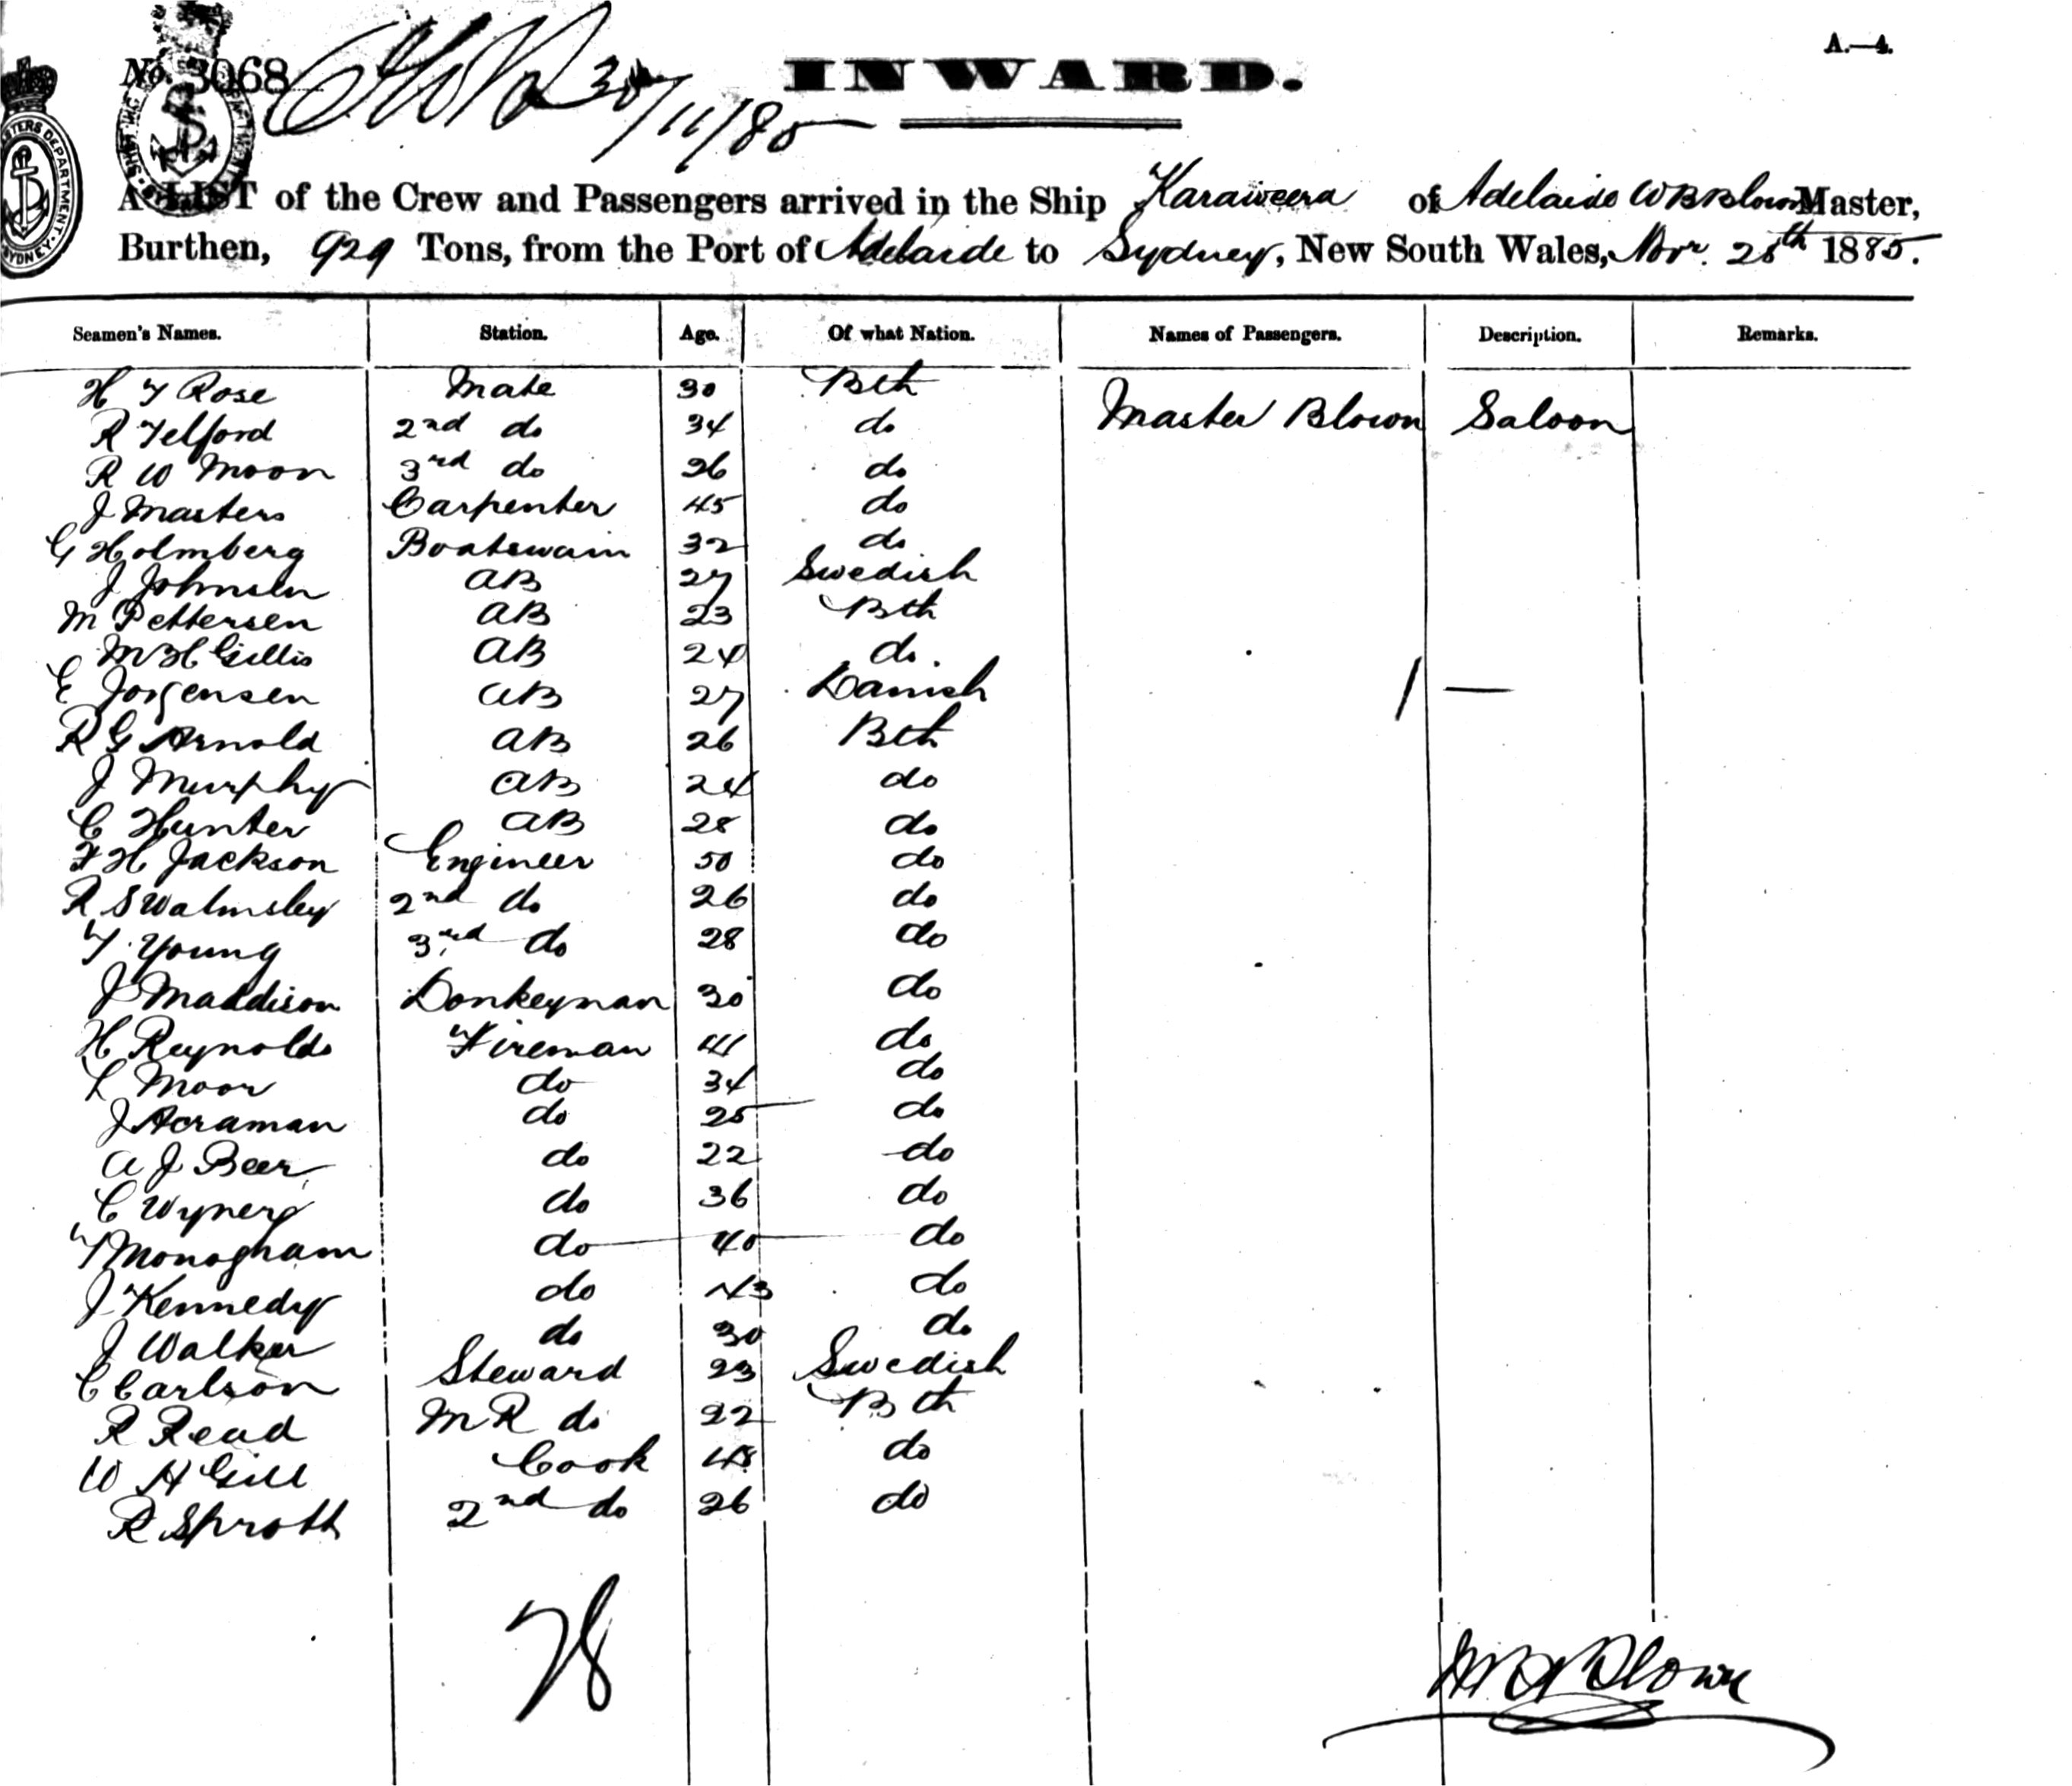 A.—4.
No. 3068
30/11/85
INWARD.
A LIST of the Crew and Passengers arrived in the Ship Karaweera of Adelaide W B Blown Master,
Burthen, 929 Tons, from the Port of Adelaide to Sydney, New South Wales, Nov. 28th 1885.
Seamen's Names. Station. Age. Of what Nation. Names of Passengers. Description. Remarks.
H T Rose Mate 30 Bth Master Blown Saloon
R Telford 2nd do 34 do
R W Moon 3rd do 26 do
J Masters Carpenter 45 do
G Holmberg Boatswain 32 do
J Johnsen AB 27 Swedish
M Pettersen AB 23 Bth
M H Gillis AB 24 do.
E Jorgensen AB 27 Danish 1 —
R G Arnold AB 26 Bth
J Murphy AB 24 do
C Hunter AB 28 do
F H Jackson Engineer 50 do
R S Walmsley 2nd do 26 do
T. Young 3rd do 28 do
J Maddison Donkeyman 30 do
H Reynolds Fireman 41 do
L Moor do 34 do
J Acraman do 25 do
A J Beer do 22 do
C Wynerg do 36 do
T Monogham do 40 do
J Kennedy do 43 do
J Walker do 30 do
C Carlson Steward 23 Swedish
R Read M R do 22 Bth
W H Gill Cook 48 do
R Sprott 2nd do 26 do
28
W B Blown